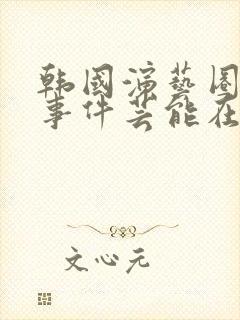 韩国演藝圈
事件芸能在
文心元